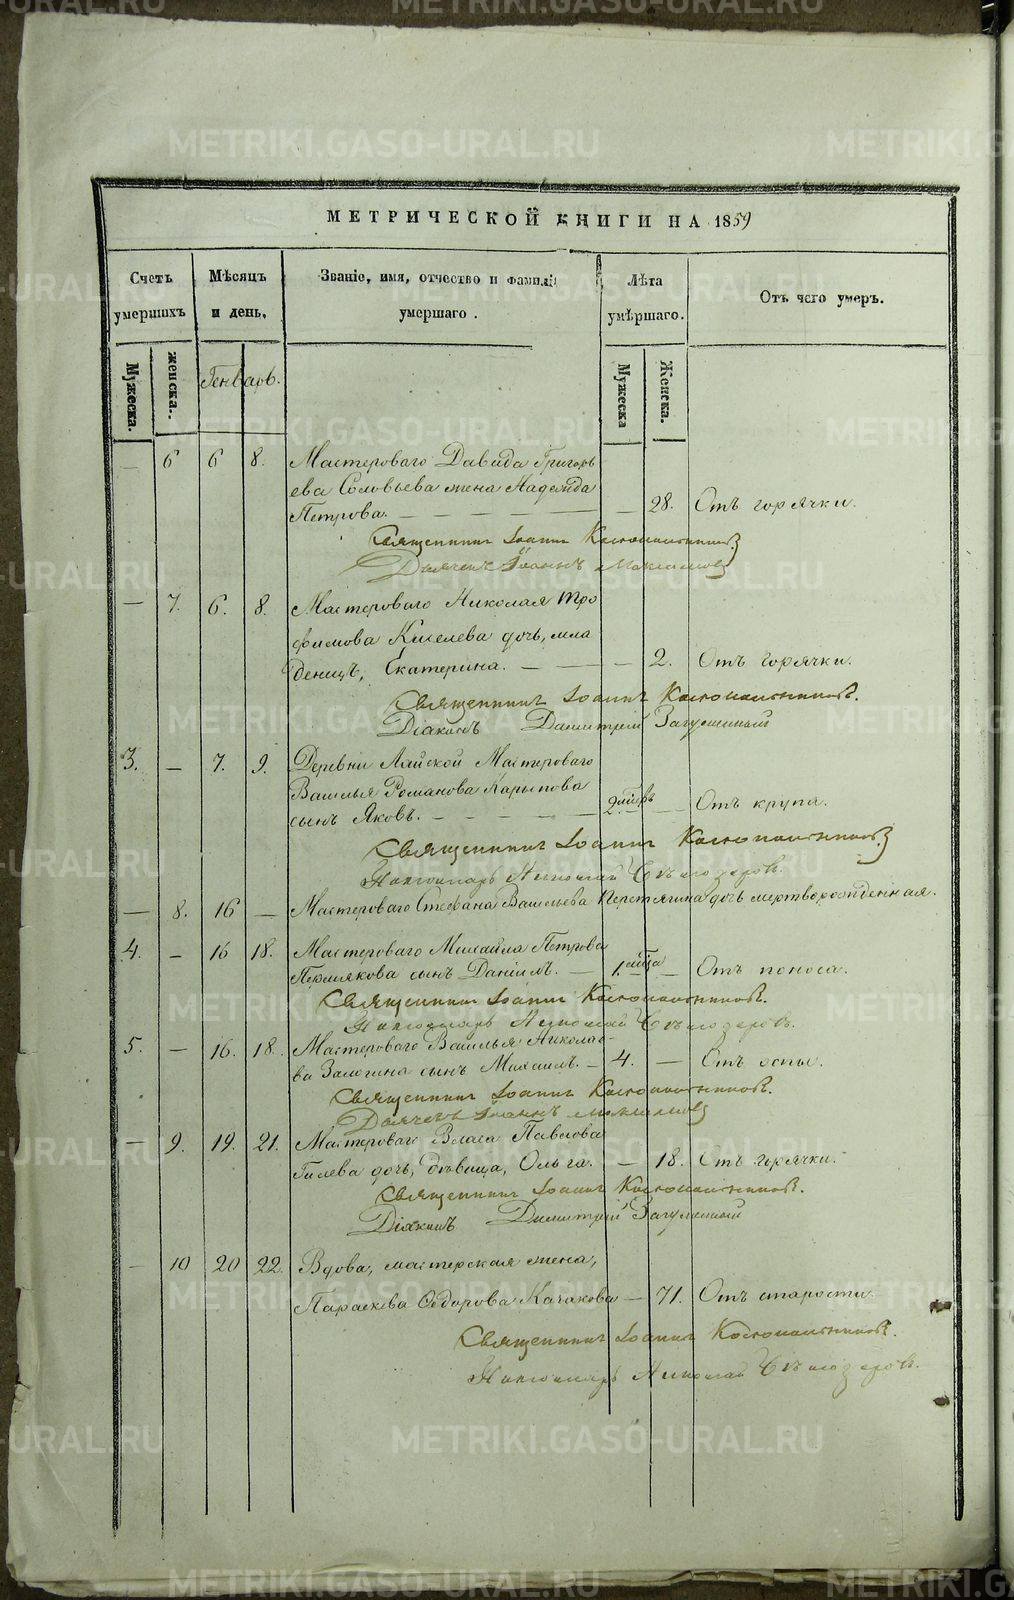 МЕТРИЧЕСКОЙ КНИГИ НА 1859
Счетъ умершихъ
Мѣсяцъ и день.
Званіе, имя, отчество и фамилія умершаго.
Лѣта умѣршаго.
Отъ чего умеръ.
Мужеска.
женска.
Генварь.
Мужеска
Женска.
— 6 6 8. Мастероваго Давида Григорь
ева Соловьева жена Надежда
Петрова. — — 28. Отъ горячки.
Священникъ Іоаннъ
Дьячекъ Іоаннъ Максимовъ
— 7. 6. 8. Мастероваго Николая Тро
фимова Киселева дочь, мла
денецъ, Екатерина. — — 2. Отъ горячки.
Священникъ Іоаннъ
Діаконъ Димитрій
3. — 7. 9. Деревни Лайской Мастероваго
Василья Романова
сынъ Яковъ. — 2. — Отъ крупа.
Священникъ Іоаннъ
Пономарь Николай
— 8. 16 — Мастероваго Стефана Васильева Перетягина дочь мертворожденная.
4. — 16 18. Мастероваго Михаила Петрова
Пермякова сынъ Даніилъ. — 1. — Отъ поноса.
Священникъ Іоаннъ
Пономарь Николай
5. — 16. 18. Мастероваго Василья Николае-
ва сынъ Михаилъ. — 4. — Отъ оспы.
Священникъ Іоаннъ
Дьячекъ Іоаннъ Максимовъ
— 9. 19. 21. Мастероваго Власа Павлова
Гилева дочь, дѣвица, Ольга. — 18. Отъ горячки.
Священникъ Іоаннъ
Діаконъ Димитрій
— 10 20 22. Вдова, мастерская жена,
Параскева Ѳедорова Качакова — 71. Отъ старости.
Священникъ Іоаннъ
Пономарь Николай
METRIKI.GASO-URAL.RU